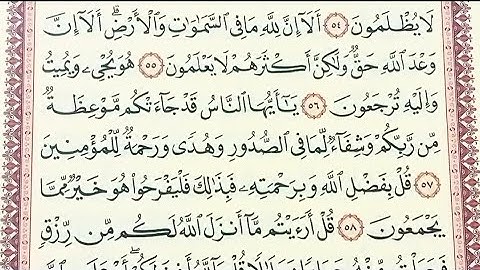 لَا يُظْلَمُونَ ٥٤ أَلَآ إِنَّ لِلَّهِ مَا فِي السَّمَٰوَٰتِ وَالْأَرْضِ ۗ أَلَآ إِنَّ
وَعْدَ اللَّهِ حَقٌّ وَلَٰكِنَّ أَكْثَرَهُمْ لَا يَعْلَمُونَ ٥٥ هُوَ يُحْيِۦ وَيُمِيتُ
وَإِلَيْهِ تُرْجَعُونَ ٥٦ يَٰٓأَيُّهَا النَّاسُ قَدْ جَآءَتْكُم مَّوْعِظَةٌ
مِّن رَّبِّكُمْ وَشِفَآءٌ لِّمَا فِي الصُّدُورِ وَهُدًى وَرَحْمَةٌ لِّلْمُؤْمِنِينَ
٥٧ قُلْ بِفَضْلِ اللَّهِ وَبِرَحْمَتِهِۦ فَبِذَٰلِكَ فَلْيَفْرَحُوا۟ هُوَ خَيْرٌ مِّمَّا
يَجْمَعُونَ ٥٨ قُلْ أَرَءَيْتُم مَّآ أَنزَلَ اللَّهُ لَكُم مِّن رِّزْقٍ